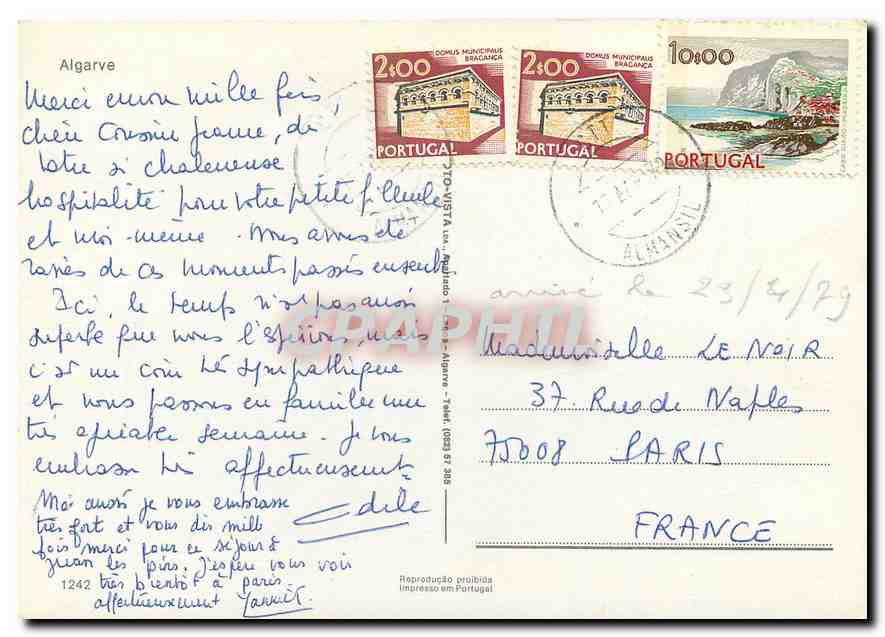 Algarve
DOMUS MUNICIPALIS
BRAGANÇA
2$00
PORTUGAL
DOMUS MUNICIPALIS
BRAGANÇA
2$00
PORTUGAL
10$00
PORTUGAL
ALMANSIL
Merci encore mille fois,
chère Cousine Jeanne, de
votre si chaleureuse
hospitalité pour votre petite filleule
et moi-même. Nous avons été
ravies de ces moments passés ensemble
Ici, le temps n'est pas aussi
superbe que nous l'espérions, mais
c'est un coin très sympathique
et nous passons en famille une
très agréable semaine. Je vous
embrasse très affectueusement
Odile
Moi aussi je vous embrasse
très fort et vous dis mille
fois merci pour ce séjour à
Juan les pins. J'espère vous voir
très bientôt à paris.
affectueusement
1242
FOTO-VISTA LDA., Apartado 1 - Algarve - Telef. (082) 57 385
arrivé le 23/4/79
Mademoiselle LE NOIR
37. Rue de Naples
75008 PARIS
FRANCE
Reprodução proibida
Impresso em Portugal
CARPHIL